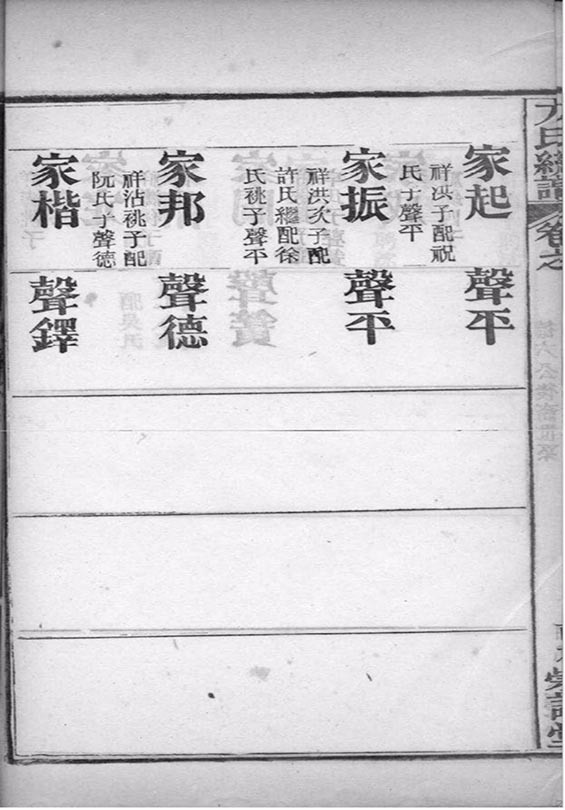 氏總譜
卷之
家起
祥洪子配祝
氏子聲平
聲平
家振
祥洪次子配
許氏繼配徐
氏祧子聲平
聲平
家邦
祥沾祧子配
阮氏子聲德
聲德
家楷
聲鐸